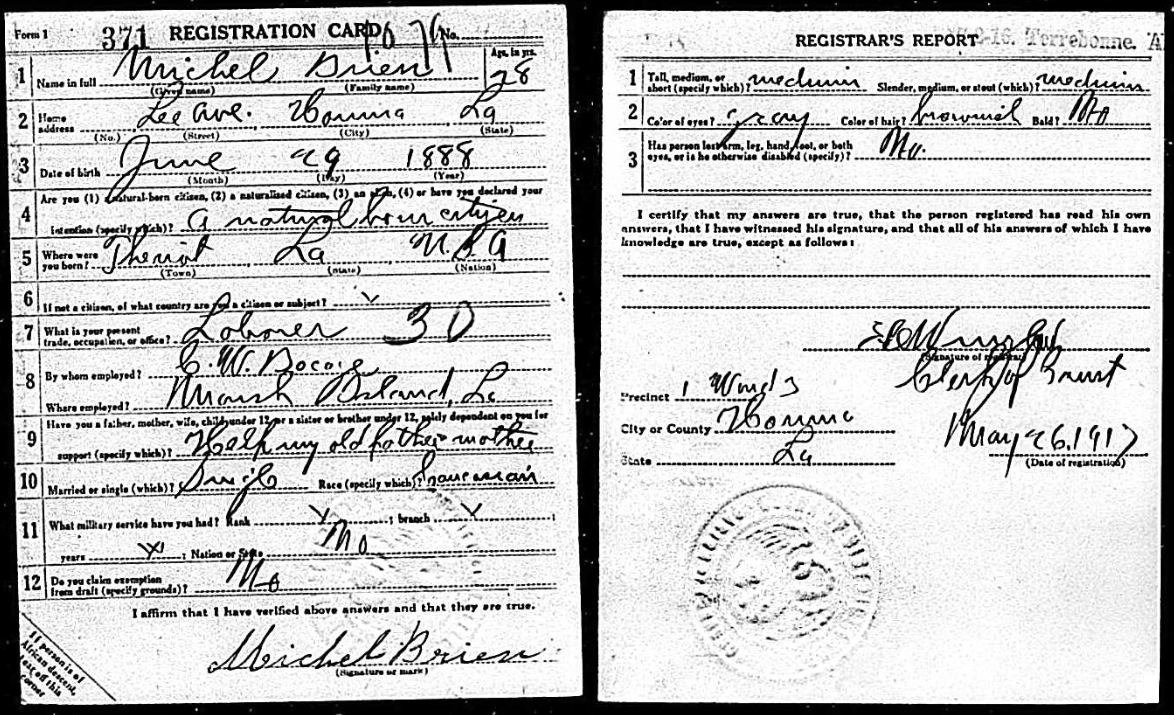 Form 1 371 REGISTRATION CARD No.
1 Name in full Michel Brien Age, in yrs. 28
(Given name) (Family name)
2 Home address Lee Ave. Houma La
(No.) (Street) (City) (State)
3 Date of birth June 29 1888
(Month) (Day) (Year)
Are you (1) a natural-born citizen, (2) a naturalized citizen, (3) an alien, (4) or have you declared your
4 intention (specify which)? A natural born citizen
5 Where were you born? Theriot La U.S.A
(Town) (State) (Nation)
6 If not a citizen, of what country are you a citizen or subject?
7 What is your present trade, occupation, or office? Laborer 30
8 By whom employed? C.W.
Where employed? Marsh Island, La
Have you a father, mother, wife, child under 12, or a sister or brother under 12, solely dependent on you for
9 support (specify which)? Help my old father mother
10 Married or single (which)? Single Race (specify which)? Caucasian
11 What military service have you had? Rank x ; branch x ;
years x ; Nation or State No
12 Do you claim exemption from draft (specify grounds)? No
I affirm that I have verified above answers and that they are true.
Michel Brien
(Signature or mark)
If person is of
African descent,
cut off this
corner
REGISTRAR'S REPORT Terrebonne.
1 Tall, medium, or short (specify which)? medium Slender, medium, or stout (which)? medium
2 Color of eyes? gray Color of hair? brownish Bald? No
3 Has person lost arm, leg, hand, foot, or both eyes, or is he otherwise disabled (specify)? No.
I certify that my answers are true, that the person registered has read his own
answers, that I have witnessed his signature, and that all of his answers of which I have
knowledge are true, except as follows:
(Signature of registrar)
Clerk of Court
Precinct 1 Ward 3
City or County Houma
State La
May 26, 1917
(Date of registration)